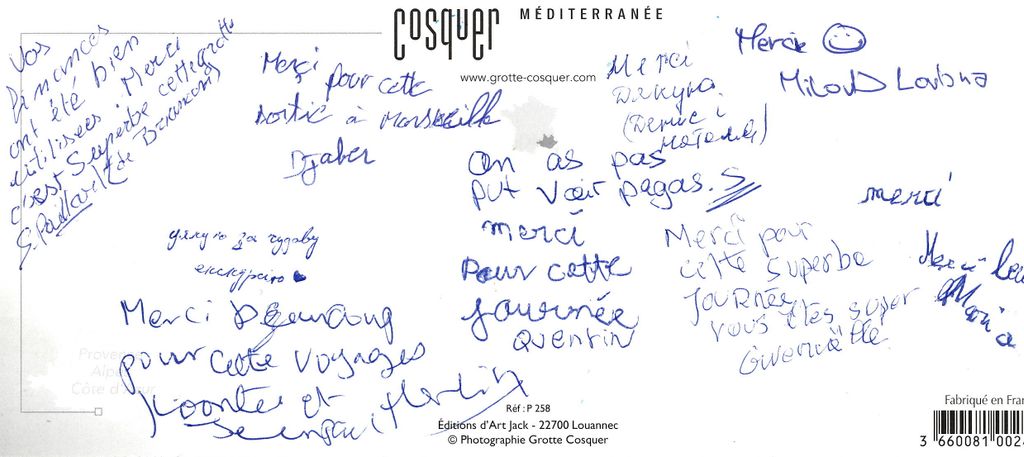 cosquer MÉDITERRANÉE
www.grotte-cosquer.com
Vos
finances
ont été bien
utilisées. Merci
c'est Superbe cette grotte
Merci
pour cette
sortie à Marseille
Djaber
Merci
Дякую.
Merci
Miloud Loubna
On as pas
put voir pagas.
merci
Pour cette
journée
Quentin
merci
Merci pour
cette superbe
journée
vous êtes super
Gwenaëlle
Merci
Maria
дякую за чудову
екскурсію
Merci
pour cette voyages
et
Provence
Alpes
Côte d'Azur
Réf : P 258
Éditions d'Art Jack - 22700 Louannec
© Photographie Grotte Cosquer
Fabriqué en Fran
3 660081 002